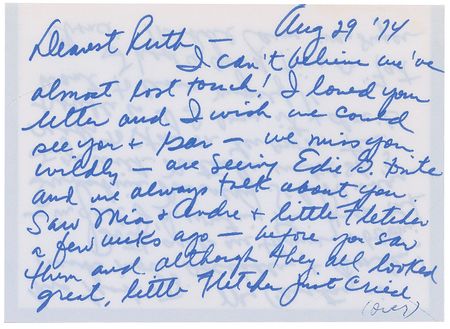 Aug 29 '74
Dearest Ruth —
I can't believe we've
almost lost touch! I loved your
letter and I wish we could
see you + Gar — we miss you
wildly — are seeing Edie G. tonite
and we always talk about you.
Saw Mia + Andre + little Fletcher
a few weeks ago — before you saw
them and although they all looked
great, little Fletcher just cried
(over)